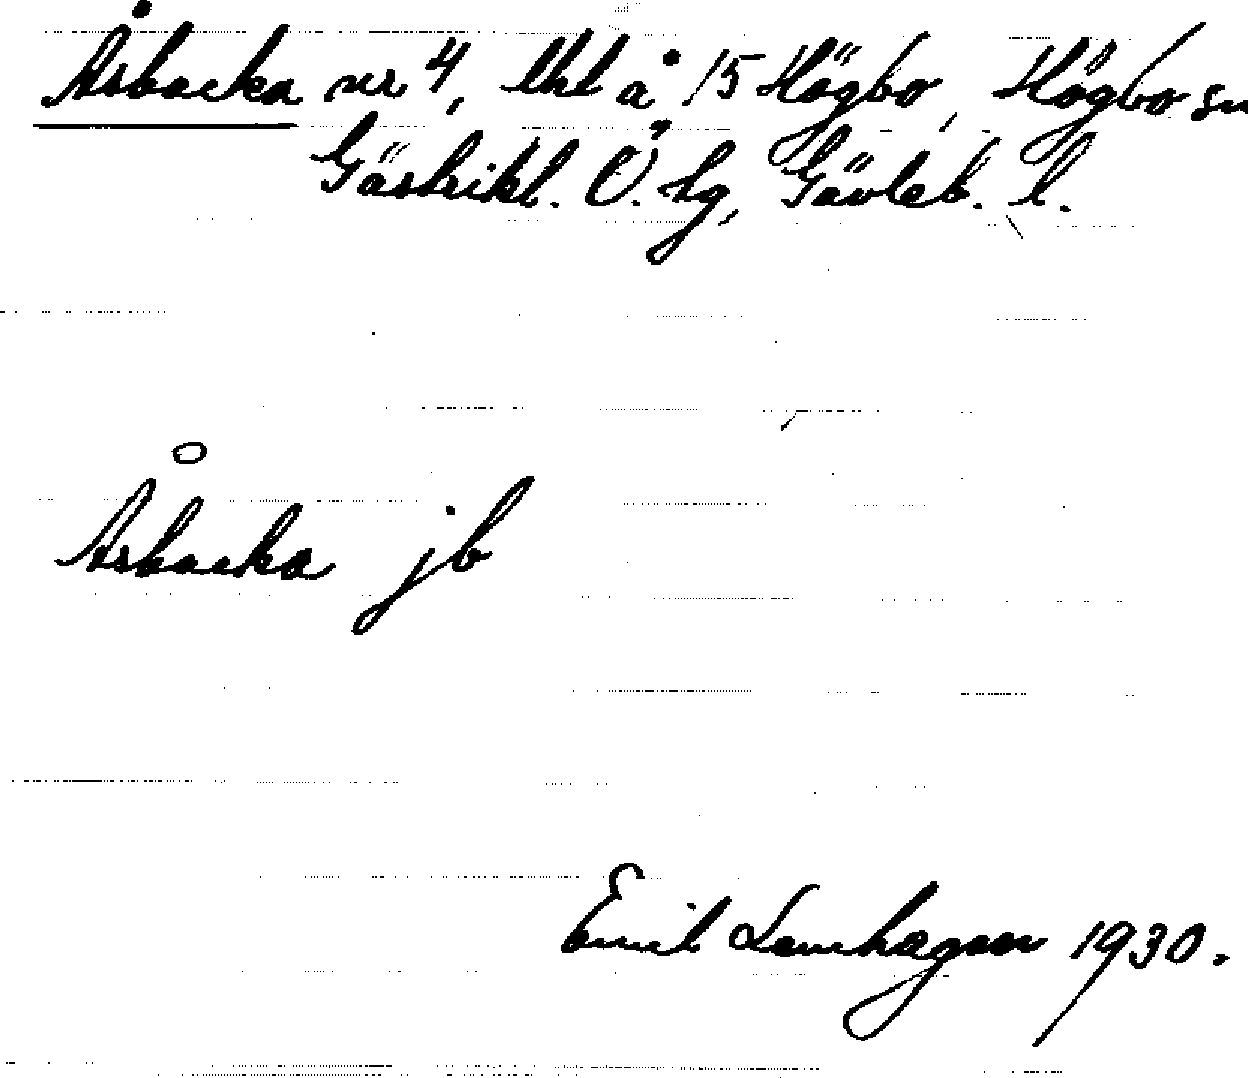 Åsbacka nr 4, lht å 15 Högbo, Högbo sn
Gästrikl. Ö. tg, Gävleb. l.
Åsbacka jb
Emil Lenhagen 1930.